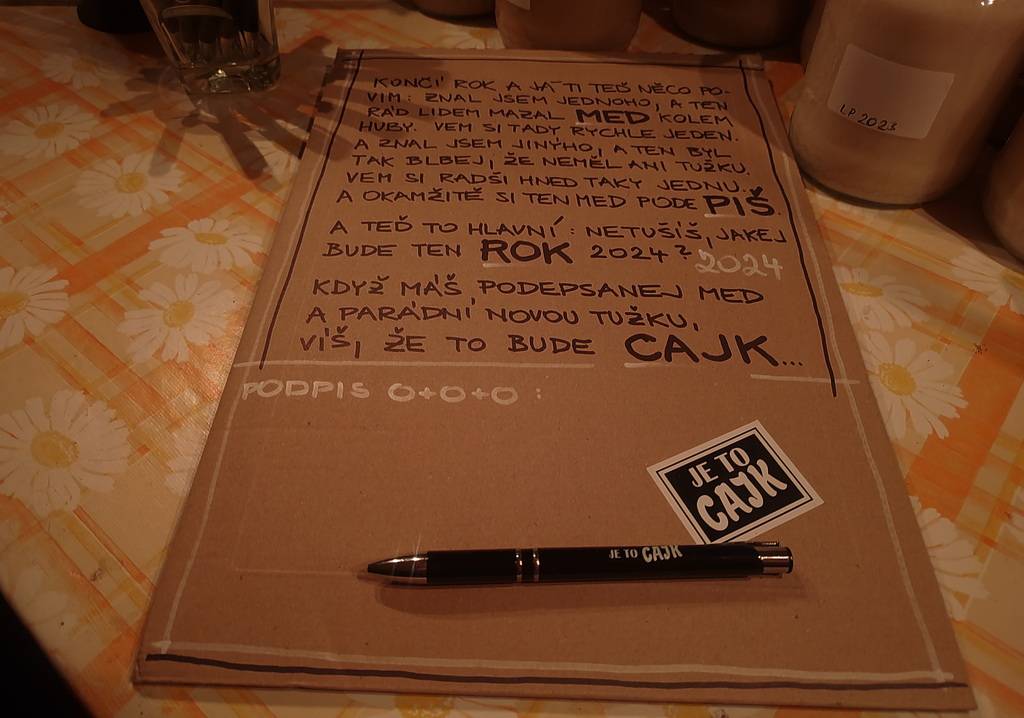 KONČÍ ROK A JÁ TI TEĎ NĚCO PO-
VÍM: ZNAL JSEM JEDNOHO, A TEN
RÁD LIDEM MAZAL MED KOLEM
HUBY. VEM SI TADY RYCHLE JEDEN.
A ZNAL JSEM JINÝHO, A TEN BYL
TAK BLBEJ, ŽE NEMĚL ANI TUŽKU.
VEM SI RADŠI HNED TAKY JEDNU.
A OKAMŽITĚ SI TEN MED PODEPIŠ.
A TEĎ TO HLAVNÍ: NETUŠÍŠ, JAKEJ
BUDE TEN ROK 2024? 2024
KDYŽ MÁŠ PODEPSANEJ MED
A PARÁDNÍ NOVOU TUŽKU,
VÍŠ, ŽE TO BUDE CAJK...
PODPIS O+O+O:
JE TO
CAJK
JE TO CAJK
LP 2023